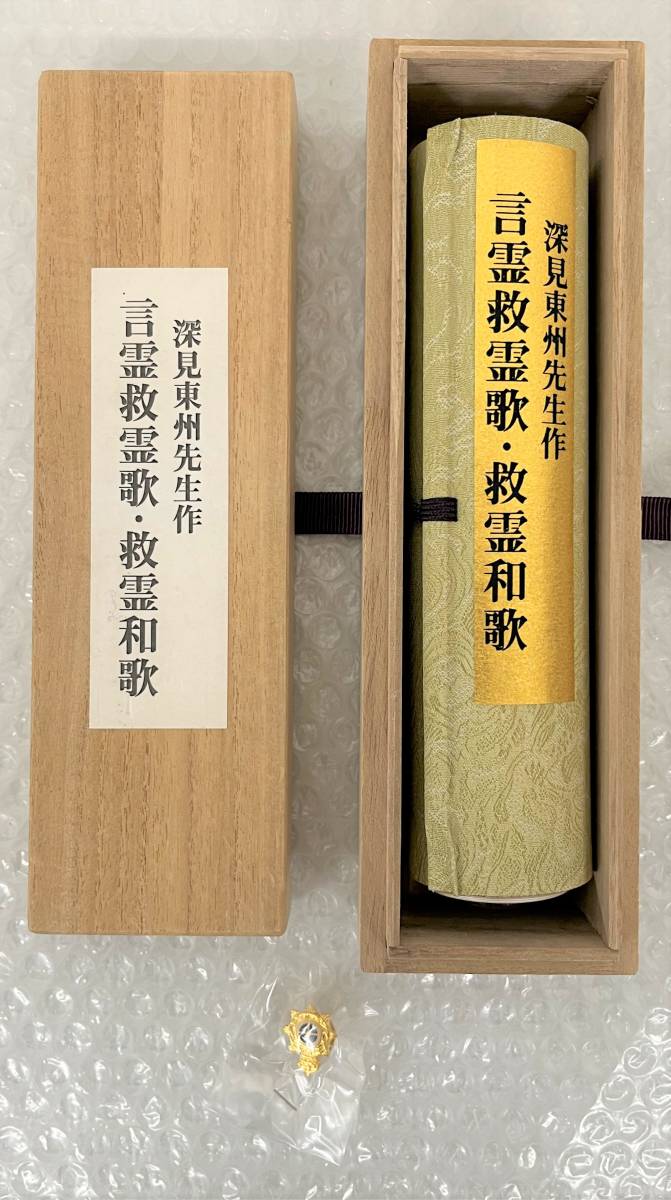 深見東州先生作
言霊救霊歌・救霊和歌
深見東州先生作
言霊救霊歌・救霊和歌